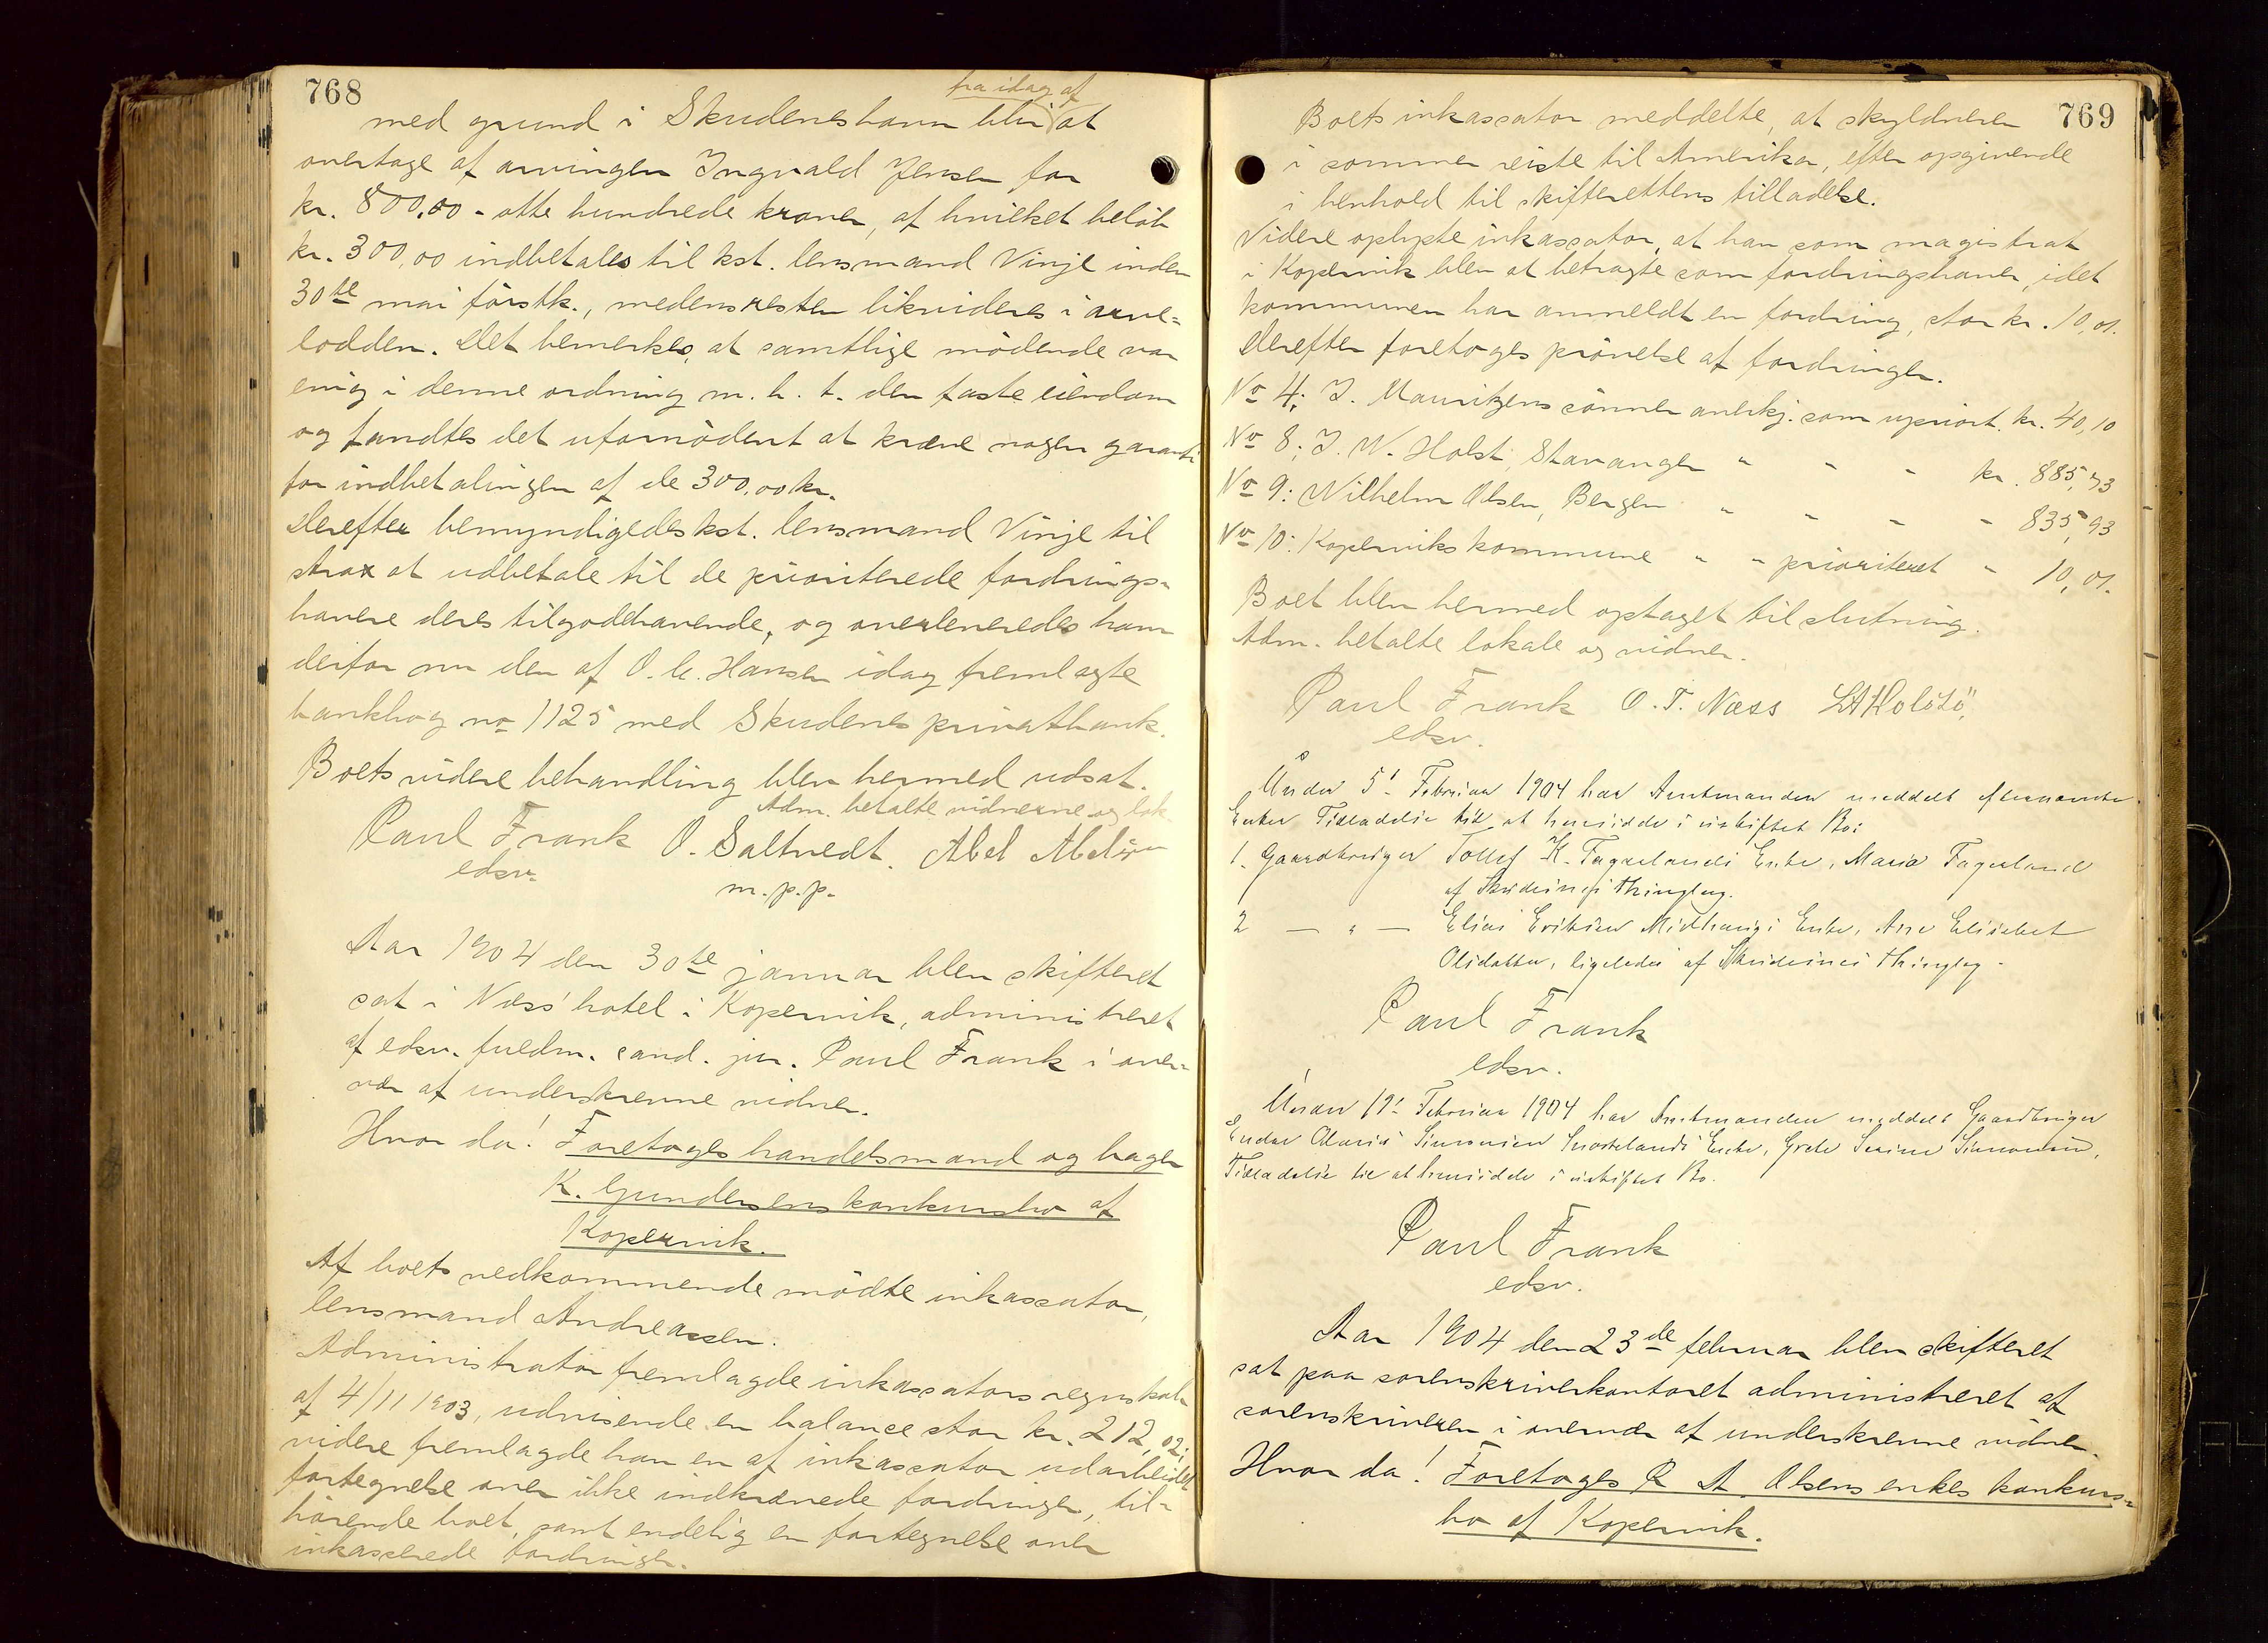 768
fra idag af
med grund i Skudeneshavn blir at
overtage af arvingen Ingvald Jensen for
kr. 800,00 - otte hundrede kroner, af hvilket beløb
kr. 300,00 indbetales til kst. lensmand Vinje inden
30te mai førstk., medens resten likvideres i arve=
lodden. Det bemerkes, at samtlige mødende var
enig i denne ordning m. h. t. den faste eiendom
og fandtes det ufornødent at kræve nogen garanti
for indbetalingen af de 300,00 kr.
Derefter bemyndigedes kst. lensmand Vinje til
strax at udbetale til de prioriterede fordrings-
havere deres tilgodehavende, og overleveredes ham
derfor nu den af O. C. Hansen idag fremlagte
bankbog no 1125 med Skudenes privatbank.
Boets videre behandling blev hermed udsat.
Adm. betalte vidnerne og lok.
Paul Frank O. Saltvedt. Abel Abelsen
edsv. m.p.p.
Aar 1904 den 30te januar blev skifteret
sat i Næss' hotel i Kopervik, administreret
af edsv. fuldm. cand. jur. Paul Frank i over-
vær af underskrevne vidner.
Hvor da! Foretoges handelsmand og bager
K. Gundersens konkursbo af
Kopervik.
Af boets vedkommende mødte inkassator,
lensmand Andreassen.
Administrator fremlagde inkassators regnskab
af 4/11 1903, udvisende en balance stor kr. 212,02;
videre fremlagde han en af inkassator udarbeidet
fortegnelse over ikke indkrævede fordringer, til-
hørende boet, samt endelig en fortegnelse over
inkasserede fordringer.
769
Boets inkassator meddelte, at skyldneren
i sommer reiste til Amerika, efter opgivende
i henhold til skifterettens tilladelse.
Videre oplyste inkassator, at han som magistrat
i Kopervik blev at betragte som fordringshaver, idet
kommunen har anmeldt en fordring, stor kr. 10,01.
Derefter foretoges prøvelse af fordringer.
No 4: J. Mauritzens sønner anerkj. som uprioit. kr. 40,10
No 8: J. W. Holst, Stavanger " " " kr. 885,73
No 9: Wilhelm Olsen, Bergen " " " " 835,93
No 10: Koperviks kommune " " prioriteret " 10,01.
Boet blev hermed optaget til slutning.
Adm. betalte lokale og vidner.
Paul Frank O. T. Næss
edsv.
Under 5' Februar 1904 har Amtmanden meddelt efternævnte
Enker Tilladelse til at hensidde i uskiftet Bo:
1. Gaardbruger Tollef K. Fagerlands Enke, Maria Fagerland
af Skudesnes Thinglag.
2 — " — Elias Eriksen Midhaugs Enke, Ane Elisabet
Olsdatter, ligeledes af Skudesnes Thinglag.
Paul Frank
edsv.
Under 19' Februar 1904 har Amtmanden meddelt Gaardbruger
Simonsen Enke, Grete Serine Simonsen,
Tilladelse til at hensidde i uskiftet Bo.
Paul Frank
edsv.
Aar 1904 den 23de februar blev skifteret
sat paa sorenskriverkontoret administreret af
sorenskriveren i overvær af underskrevne vidner.
Hvor da! Foretoges R A. Olsens enkes konkurs=
bo af Kopervik.